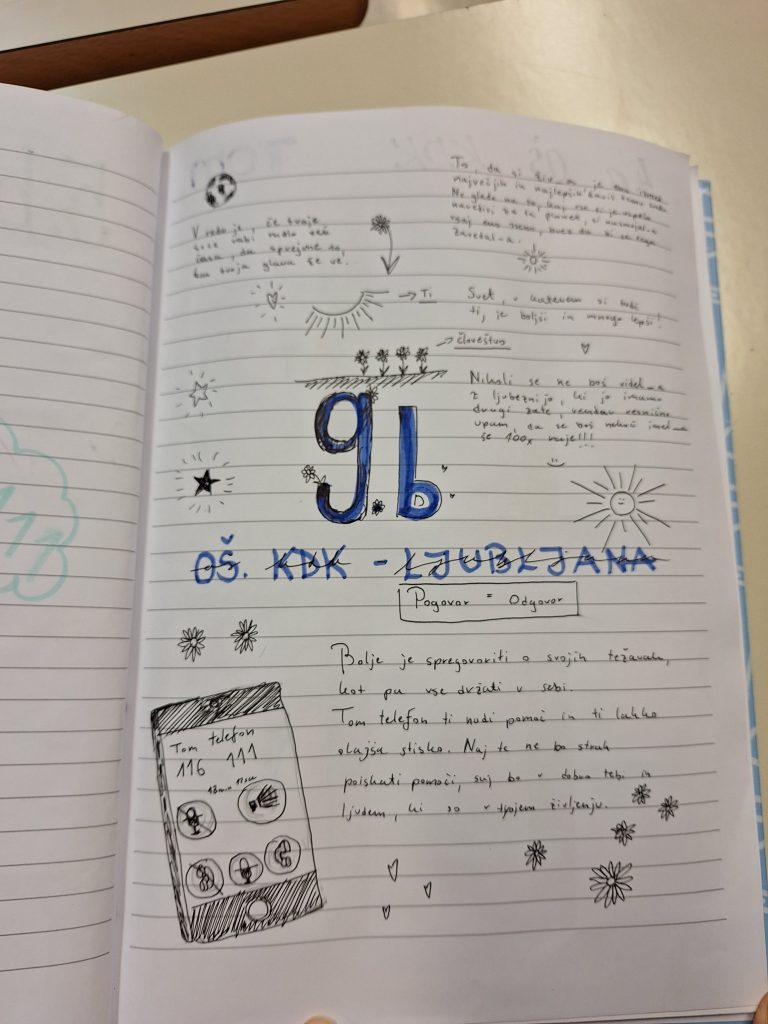 To, da si živ_a je eno izmed
največjih in najlepših
Ne glede na to, kaj vse ti je uspelo
narediti za ta planet, si nasmejal-a
vsaj eno osebo, brez da bi se tega
zavedal-a.
V redu je, če tvoje
srce rabi malo več
časa, da sprejme to,
kar tvoja glava že ve.
→ Ti
Svet, v katerem si tudi
ti, je boljši in mnogo lepši!
→ človeštvo
Nikoli se ne boš videl_a
z ljubeznijo, ki jo imamo
drugi zate, vendar resnično
upam, da se boš nekoč imel_a
še 100x raje!!!
:)
9.b
OŠ. KDK - LJUBLJANA
Pogovor = Odgovor
Bolje je spregovoriti o svojih težavah,
kot pa vse držati v sebi.
Tom telefon ti nudi pomoč in ti lahko
olajša stisko. Naj te ne bo strah
poiskati pomoči, saj bo v dobro tebi in
ljudem, ki so v tvojem življenju.
Tom telefon
116 111